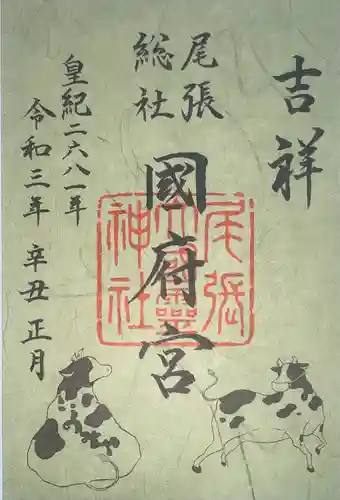 吉祥
尾張
総社
國府宮
皇紀二六八一年
令和三年 辛丑 正月
尾張
大國霊
神社